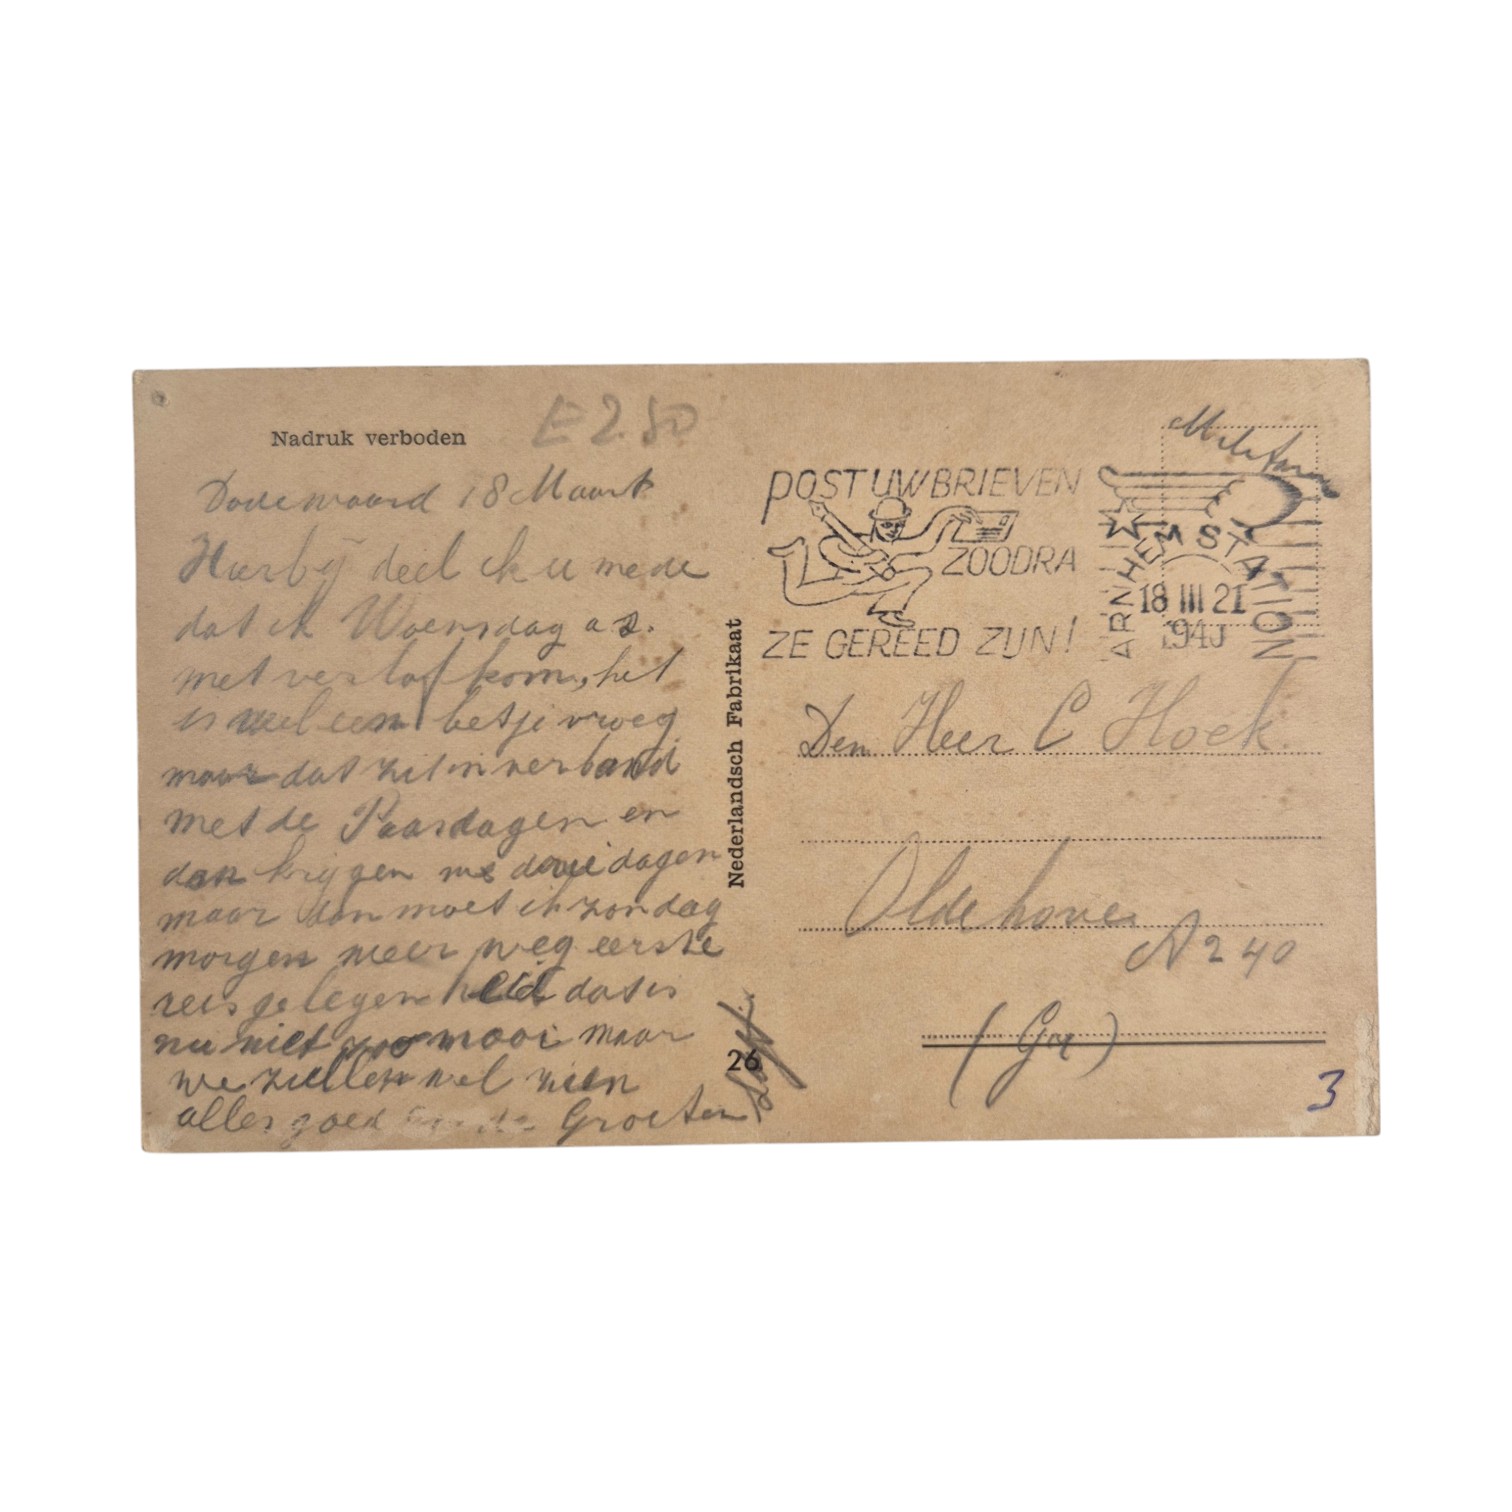 Nadruk verboden
E 2.50
Dodewaard 18 Maart
Hierbij deel ik u mede
dat ik Woensdag a s.
met verlof kom, het
is wel een betje vroeg
maar dat zit in verband
met de Paasdagen en
dan krijgen we drie dagen
maar dan moet ik zondag
morgen weer weg eerste
reis gelegenheid dat is
nu niet zoo mooi maar
we zullen wel zien
alles goed Groeten
Nederlandsch Fabrikaat
26
Militair
POST UW BRIEVEN
ZOODRA
ZE GEREED ZIJN!
ARNHEM STATION
18 III 21
1940
Den Heer C Hoek.
Oldehove
N 240
(Gr)
3